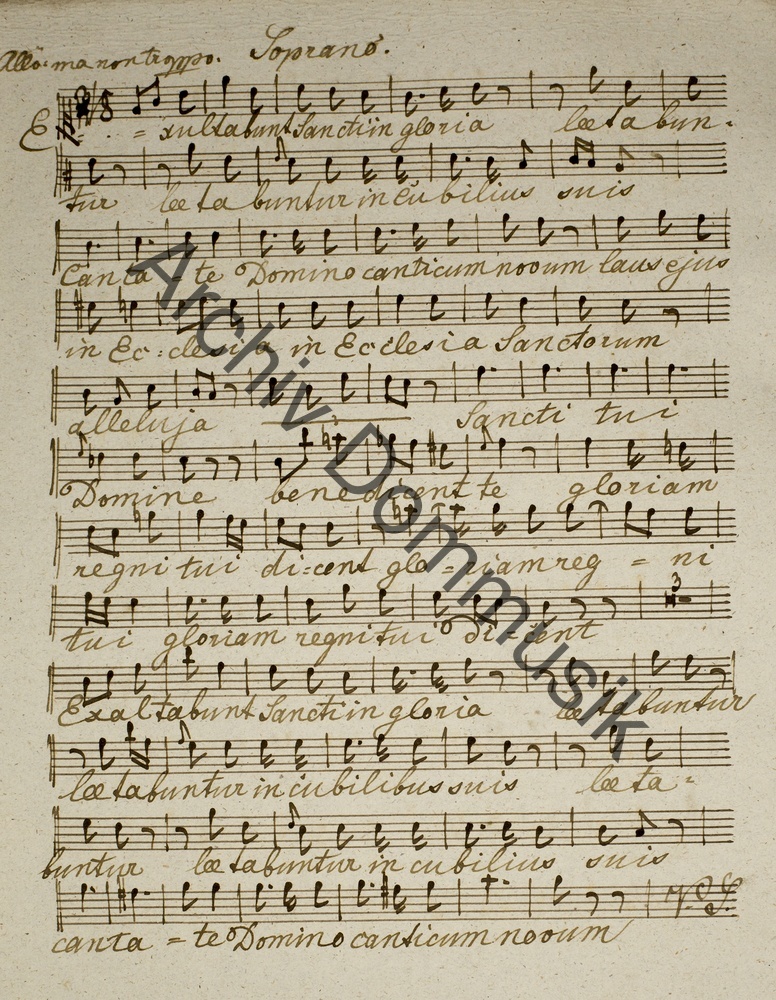 Allo: ma non troppo. Soprano.
E = xultabunt Sancti in gloria lœtabun-
tur lœtabuntur in cubilius suis
Canta te Domino canticum novum laus ejus
in Ec:clesi a in Ecclesia Sanctorum
alleluja Sancti tui
Domine benedicent te gloriam
regni tui di:cent glo=riam reg = ni
tui gloriam regni tui di=cent
3
Exaltabunt Sancti in gloria lœtabuntur
lœtabuntur in cubilibus suis lœta=
buntur lœtabuntur in cubilius suis
V. S.
canta = te Domino canticum novum
Archiv Dommusik